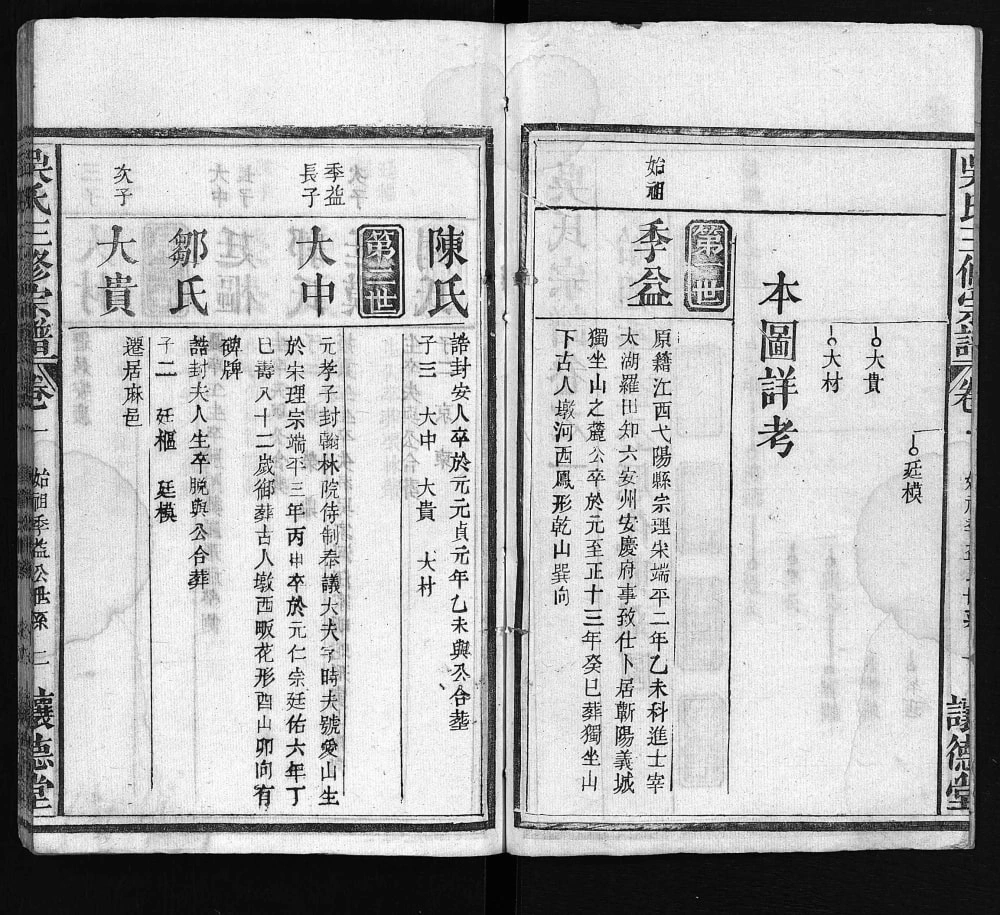 吳氏三修宗譜
卷一
讓德堂
廷模
大貴
大村
本圖詳考
第一世
始祖
季益
原籍江西弋陽縣宗理宋端平二年乙未科進士宰
太湖羅田知六安州安慶府事致仕卜居蘄陽義城
獨坐山之麓公卒於元至正十三年癸巳葬獨坐山
下古人墩河西鳳形乾山巽向
陳氏
誥封安人卒於元元貞元年乙未與公合墓
子三 大中 大貴 大村
第二世
季益
長子
大中
元孝子封翰林院侍制奉議大夫字時夫號愛山生
於宋理宗端平三年丙申卒於元仁宗廷佑六年丁
巳壽八十二歲御葬古人墩西畈花形酉山卯向有
碑牌
鄒氏
誥封夫人生卒脫與公合葬
子二 廷樞 廷模
次子
大貴
遷居麻邑
吳氏三修宗譜
卷一
始祖季益公世系
三
讓德堂